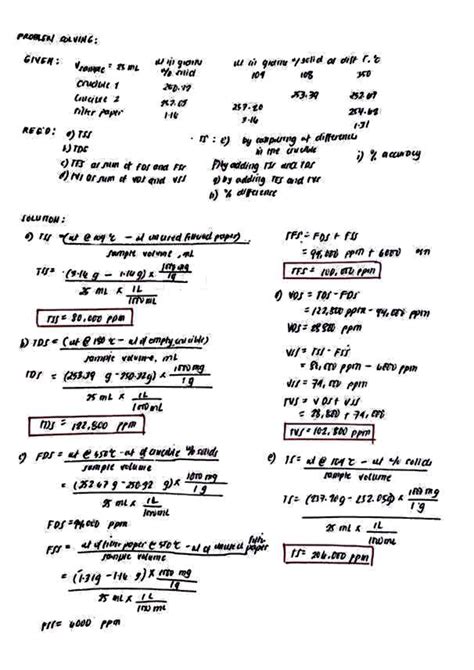 PROBLEM SOLVING:
GIVEN:
V sample = 25 mL
wt in grams
w/o solid
wt in grams w/solid at diff T, °C
104 108 550
crucible 1
253.39 252.67
crucible 2
237.20
Filter paper 1.16 3.16 1.31
REQ'D: a) TSS
b) TDS
c) TFS as sum of FDS and FSS
d) TVS as sum of VDS and VSS
TS: e) by comparing wt difference
in the crucible
f) by adding TSS and TDS
g) by adding TFS and TVS
h) % difference
i) % accuracy
SOLUTION:
a) TSS = (wt @ 104°C - wt of unused filter paper)
sample volume, mL
TSS = (3.16 g - 1.16 g) x 1000 mg
1g
25 mL x 1L
1000 mL
TSS = 80,000 ppm
b) TDS = (wt @ 180°C - wt of empty crucible)
sample volume, mL
TDS = (253.39 g - 250.32g) x 1000 mg
1g
25 mL x 1L
1000 mL
TDS = 122,800 ppm
c) FDS = wt @ 550°C - wt of crucible w/o solids
sample volume
= (252.67 g - 250.32 g) x 1000 mg
1 g
25 mL x 1L
1000 mL
FDS = 94000 ppm
FSS = wt of filter paper @ 550°C - wt of unused filter paper
sample volume
= (1.31g - 1.16 g) x 1000 mg
1g
25 mL x 1 L
1000 mL
FSS = 6000 ppm
TFS = FDS + FSS
= 94,000 ppm + 6000 ppm
TFS = 100,000 ppm
d) VDS = TDS - FDS
= 122,800 ppm - 94,000 ppm
VDS = 28 800 ppm
VSS = TSS - FSS
= 80,000 ppm - 6000 ppm
VSS = 74,000 ppm
TVS = VDS + VSS
= 28,800 + 74,000
TVS = 102,800 ppm
e) TS = wt @ 104°C - wt w/o solids
sample volume
TS = (237.20g - 232.05g) x 1000 mg
1 g
25 mL x 1L
1000 mL
TS = 206,000 ppm